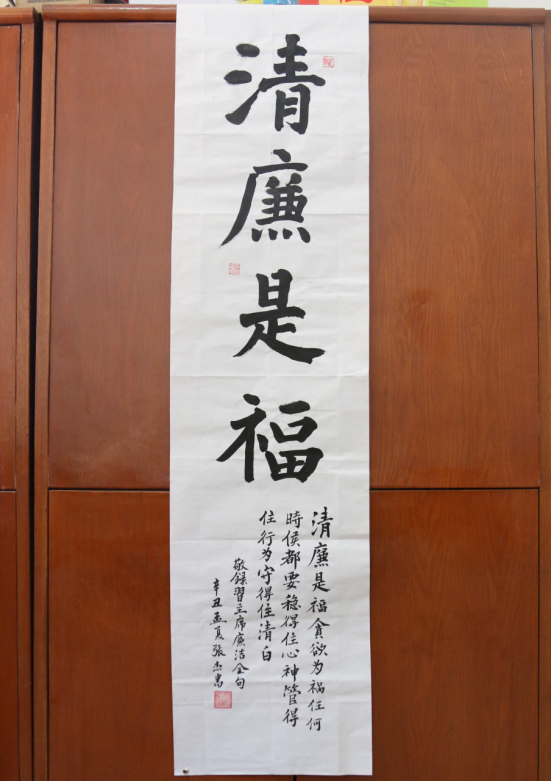 清廉是福
清廉是福貪欲为祸任何
時侯都要稳得住心神管得
住行为守得住清白
敬錄習主席廉洁金句
辛丑孟夏張杰書